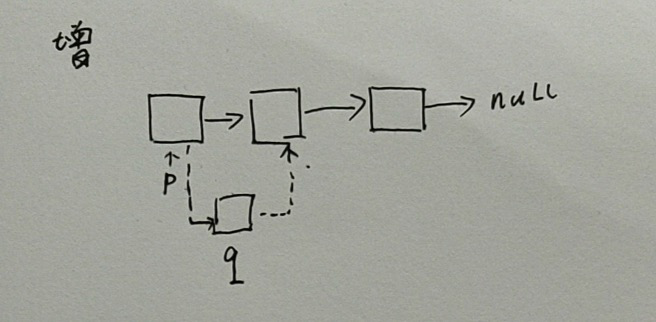 增
null
p
q